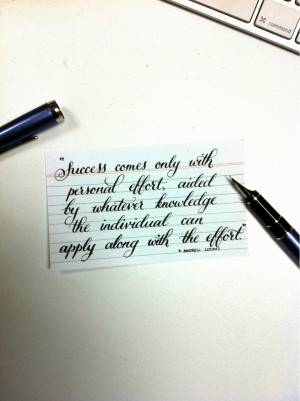 ⌘
command
"Success comes only with
personal effort; aided
by whatever knowledge
the individual can
apply along with the effort."
ANDREW LOOMIS